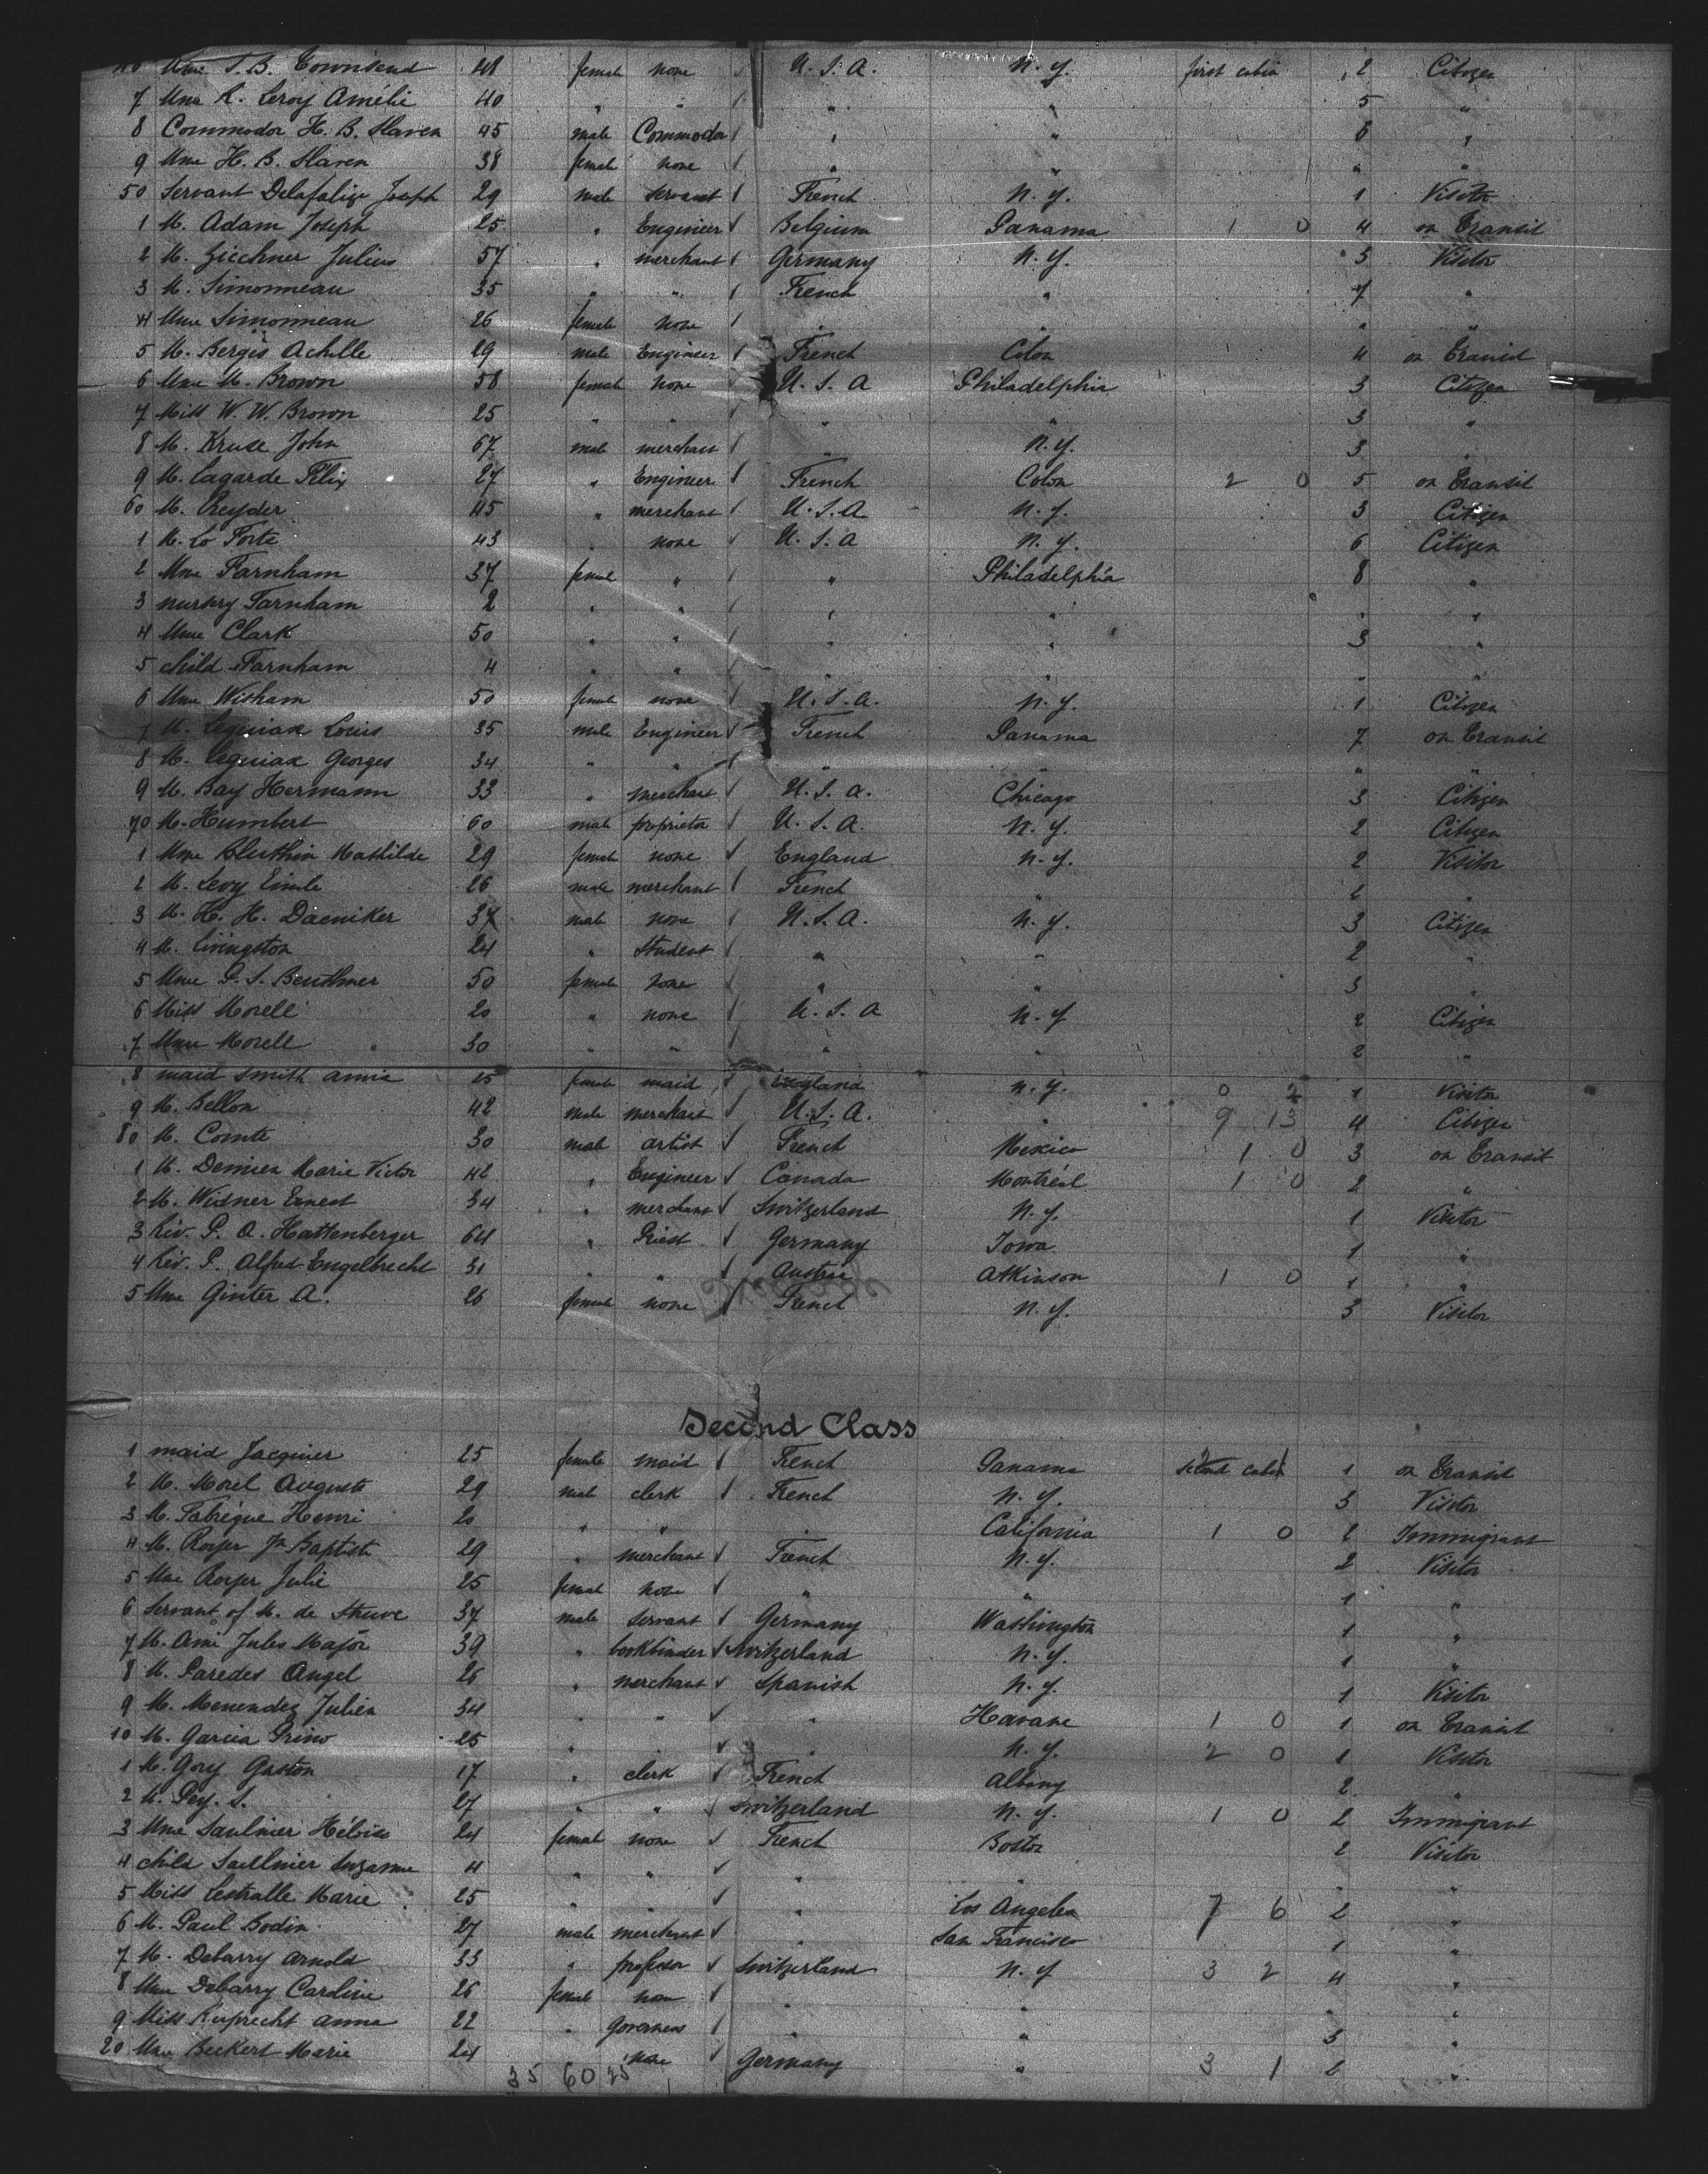 Mme T. B. Townsend 48 female none U. S. A. N. Y. first cabin 2 Citizen
7 Mme R. Leroy Amélie 40 " " " " 5 "
8 Commodor H. B. Slaven 45 male Commodor " " 6 "
9 Mme H. B. Slaven 38 female none " " " "
50 Servant Delafalize Joseph 29 male servant French N. Y. 1 Visitor
1 M. Adam Joseph 25 " Engineer Belgium Panama 1 0 4 on Transit
2 M. Julius 57 " merchant Germany N. Y. 3 Visitor
3 M. Simonneau 35 " " French " 7 "
4 Mme Simonneau 26 female none " " " "
5 M. Bergès Achille 29 male Engineer French Colon 4 on Transit
6 Mme M. Brown 58 female none U. S. A Philadelphia 3 Citizen
7 Miss W. W. Brown 25 " " " " 3 "
8 M. Kruse John 67 male merchant " N. Y. 3 "
9 M. Lagarde Félix 27 " Engineer French Colon 2 0 5 on Transit
60 M. Reyder 45 " merchant U. S. A N. Y. 3 Citizen
1 M. Lo Forte 43 " none U. S. A N. Y. 6 Citizen
2 Mme Farnham 37 female " " Philadelphia 8 "
3 nursery Farnham 2 " " " " " "
4 Mme Clark 50 " " " " 3 "
5 child Farnham 4 " " " " " "
6 Mme Witham 50 female none U. S. A. N. Y. 1 Citizen
7 M. Lequiax Louis 35 male Engineer French Panama 7 on Transit
8 M. Lequiax Georges 34 " " " " " "
9 M. Bay Hermann 33 " merchant U. S. A. Chicago 3 Citizen
70 M. Humbert 60 male proprietor U. S. A. N. Y. 2 Citizen
1 Mme Bluthin Mathilde 29 female none England N. Y. 2 Visitor
2 M. Levy Emile 26 male merchant French " 2 "
3 M. H. H. Daeniker 37 male none U. S. A. N. Y. 3 Citizen
4 M. Livingston 24 " Student " " 2 "
5 Mme P. S. Beuthner 50 female none " " 3 "
6 Miss Morell 20 " none U. S. A N. Y 2 Citizen
7 Mme Morell 30 " " " " 2 "
8 maid Smith Annie 25 female maid England N. Y. 0 2 1 Visitor
9 M. Bellon 42 male merchant U. S. A. " 9 13 4 Citizen
80 M. Comte 30 male artist French Mexico 1 0 3 on Transit
1 M. Demien Marie Victor 42 " Engineer Canada Montréal 1 0 2 "
2 M. Widner Ernest 34 " merchant Switzerland N. Y. 1 Visitor
3 Rév. P. A. Hattenberger 64 " Priest Germany Iowa 1 "
4 Rév. P. Alfred Engelbrecht 31 " " Austria Atkinson 1 0 1 "
5 Mme Ginter A. 26 female none French N. Y. 3 Visitor
Second Class
1 maid Jacquier 25 female maid French Panama second cabin 1 on Transit
2 M. Morel Auguste 29 male clerk French N. Y. 3 Visitor
3 M. Fabrègue Henri 20 " " " California 1 0 2 Immigrant
4 M. Royer Jn Baptiste 29 " merchant French N. Y. 2 Visitor
5 Mme Royer Julie 25 female none " " 1 "
6 Servant of M. de Struve 37 male servant Germany Washington 1 "
7 M. Ami Jules Major 39 " bookbinder Switzerland N. Y. 1 "
8 M. Paredes Angel 26 " merchant Spanish N. Y. 1 Visitor
9 M. Menendez Julien 34 " " " Havane 1 0 1 on Transit
10 M. Garcia Grino 25 " " " N. Y. 2 0 1 Visitor
1 M. Gory Gaston 17 " clerk French Albany 2 "
2 M. Pey. S. 27 " " Switzerland N. Y. 1 0 2 Immigrant
3 Mme Saulnier Héloise 24 female none French Boston 2 Visitor
4 child Saulnier Suzanne 4 " " " " " "
5 Miss Lestralle Marie 25 " " " Los Angeles 7 6 2 "
6 M. Paul Bodin 27 male merchant " San Francisco 1 "
7 M. Debarry Arnold 33 " professor Switzerland N. Y 3 2 4 "
8 Mme Debarry Caroline 26 female none " " " "
9 Miss Ruprecht Anna 22 " governess " " 3 "
20 Mme Beckert Marie 24 " none Germany " 3 1 2 "
35 60 25